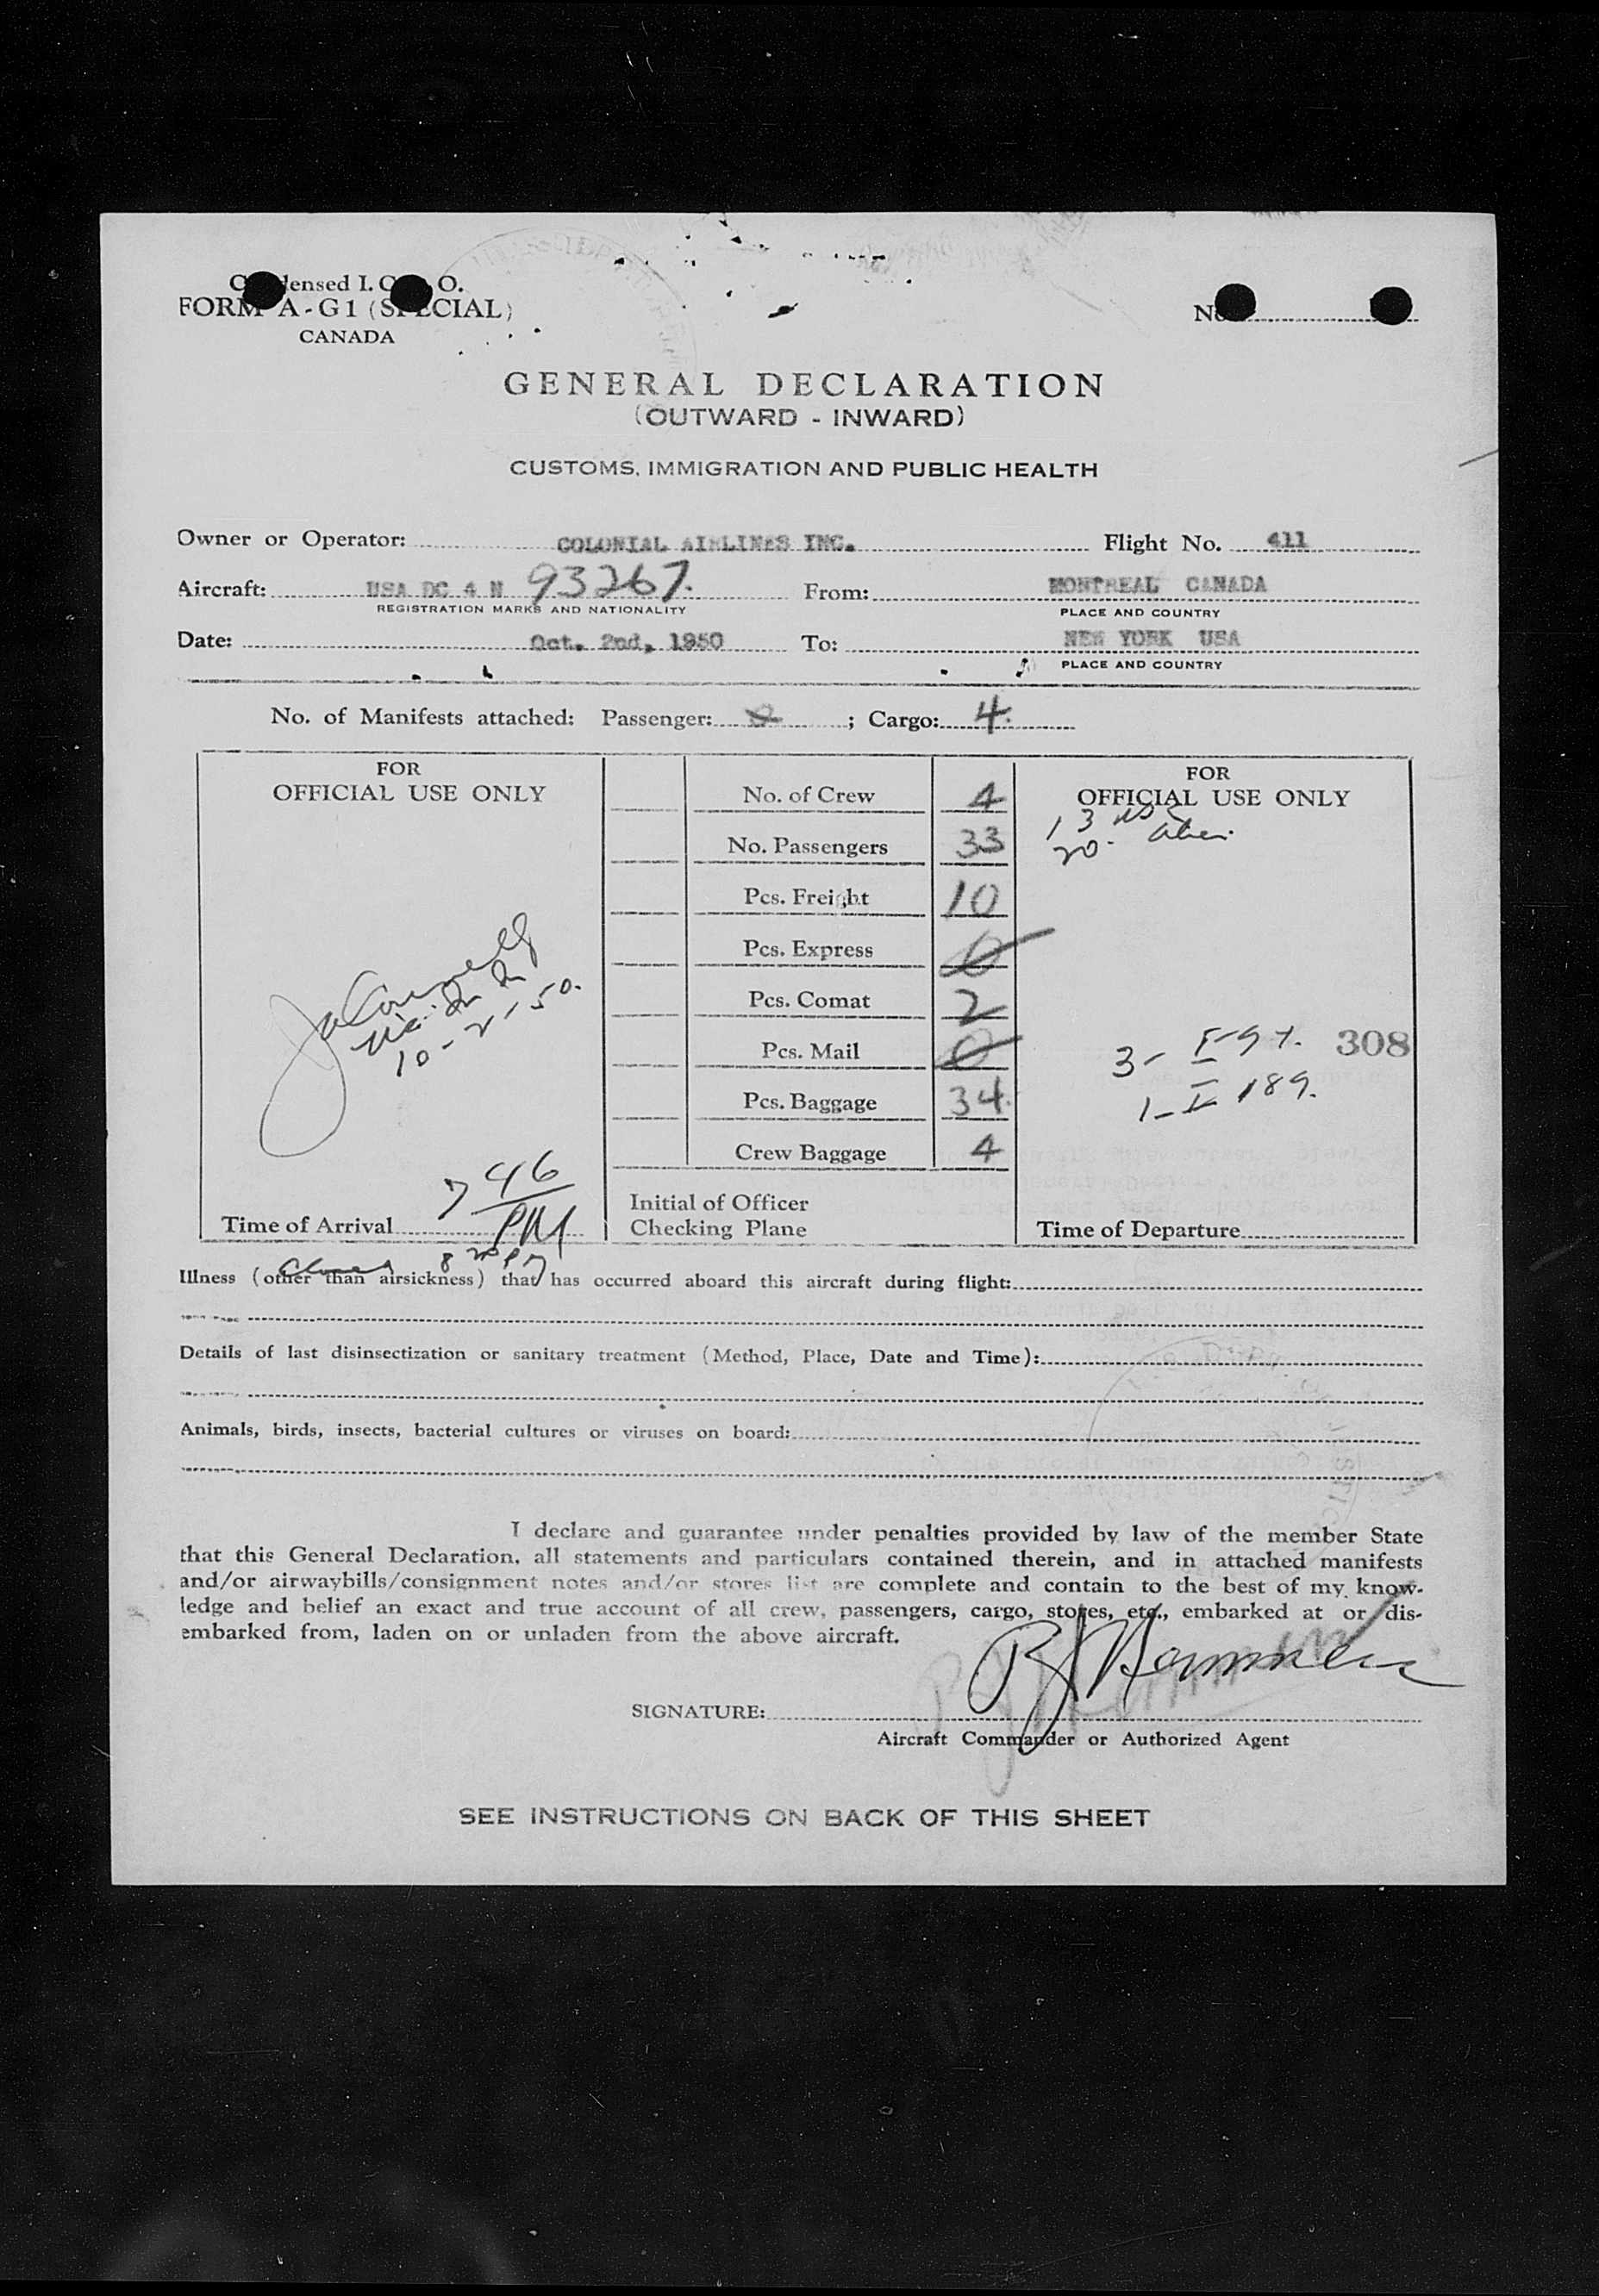 Condensed I. C. A. O.
FORM A-G1 (SPECIAL)
CANADA
No.
GENERAL DECLARATION
(OUTWARD - INWARD)
CUSTOMS, IMMIGRATION AND PUBLIC HEALTH
Owner or Operator: COLONIAL AIRLINES INC. Flight No. 411
Aircraft: USA DC 4 N 93267. From: MONTREAL CANADA
REGISTRATION MARKS AND NATIONALITY PLACE AND COUNTRY
Date: Oct. 2nd, 1950 To: NEW YORK USA
PLACE AND COUNTRY
No. of Manifests attached: Passenger: ; Cargo: 4.
FOR
OFFICIAL USE ONLY
10-2-50.
7 46
PM
Time of Arrival
No. of Crew 4
No. Passengers 33
Pcs. Freight 10
Pcs. Express 0
Pcs. Comat 2
Pcs. Mail 0
Pcs. Baggage 34.
Crew Baggage 4
Initial of Officer
Checking Plane
FOR
OFFICIAL USE ONLY
13 USC
20. alien.
308
1-I 189.
Time of Departure
Illness (other than airsickness) that has occurred aboard this aircraft during flight:
Details of last disinsectization or sanitary treatment (Method, Place, Date and Time):
Animals, birds, insects, bacterial cultures or viruses on board:
I declare and guarantee under penalties provided by law of the member State
that this General Declaration, all statements and particulars contained therein, and in attached manifests
and/or airwaybills/consignment notes and/or stores list are complete and contain to the best of my know-
ledge and belief an exact and true account of all crew, passengers, cargo, stores, etc., embarked at or dis-
embarked from, laden on or unladen from the above aircraft.
SIGNATURE:
Aircraft Commander or Authorized Agent
SEE INSTRUCTIONS ON BACK OF THIS SHEET